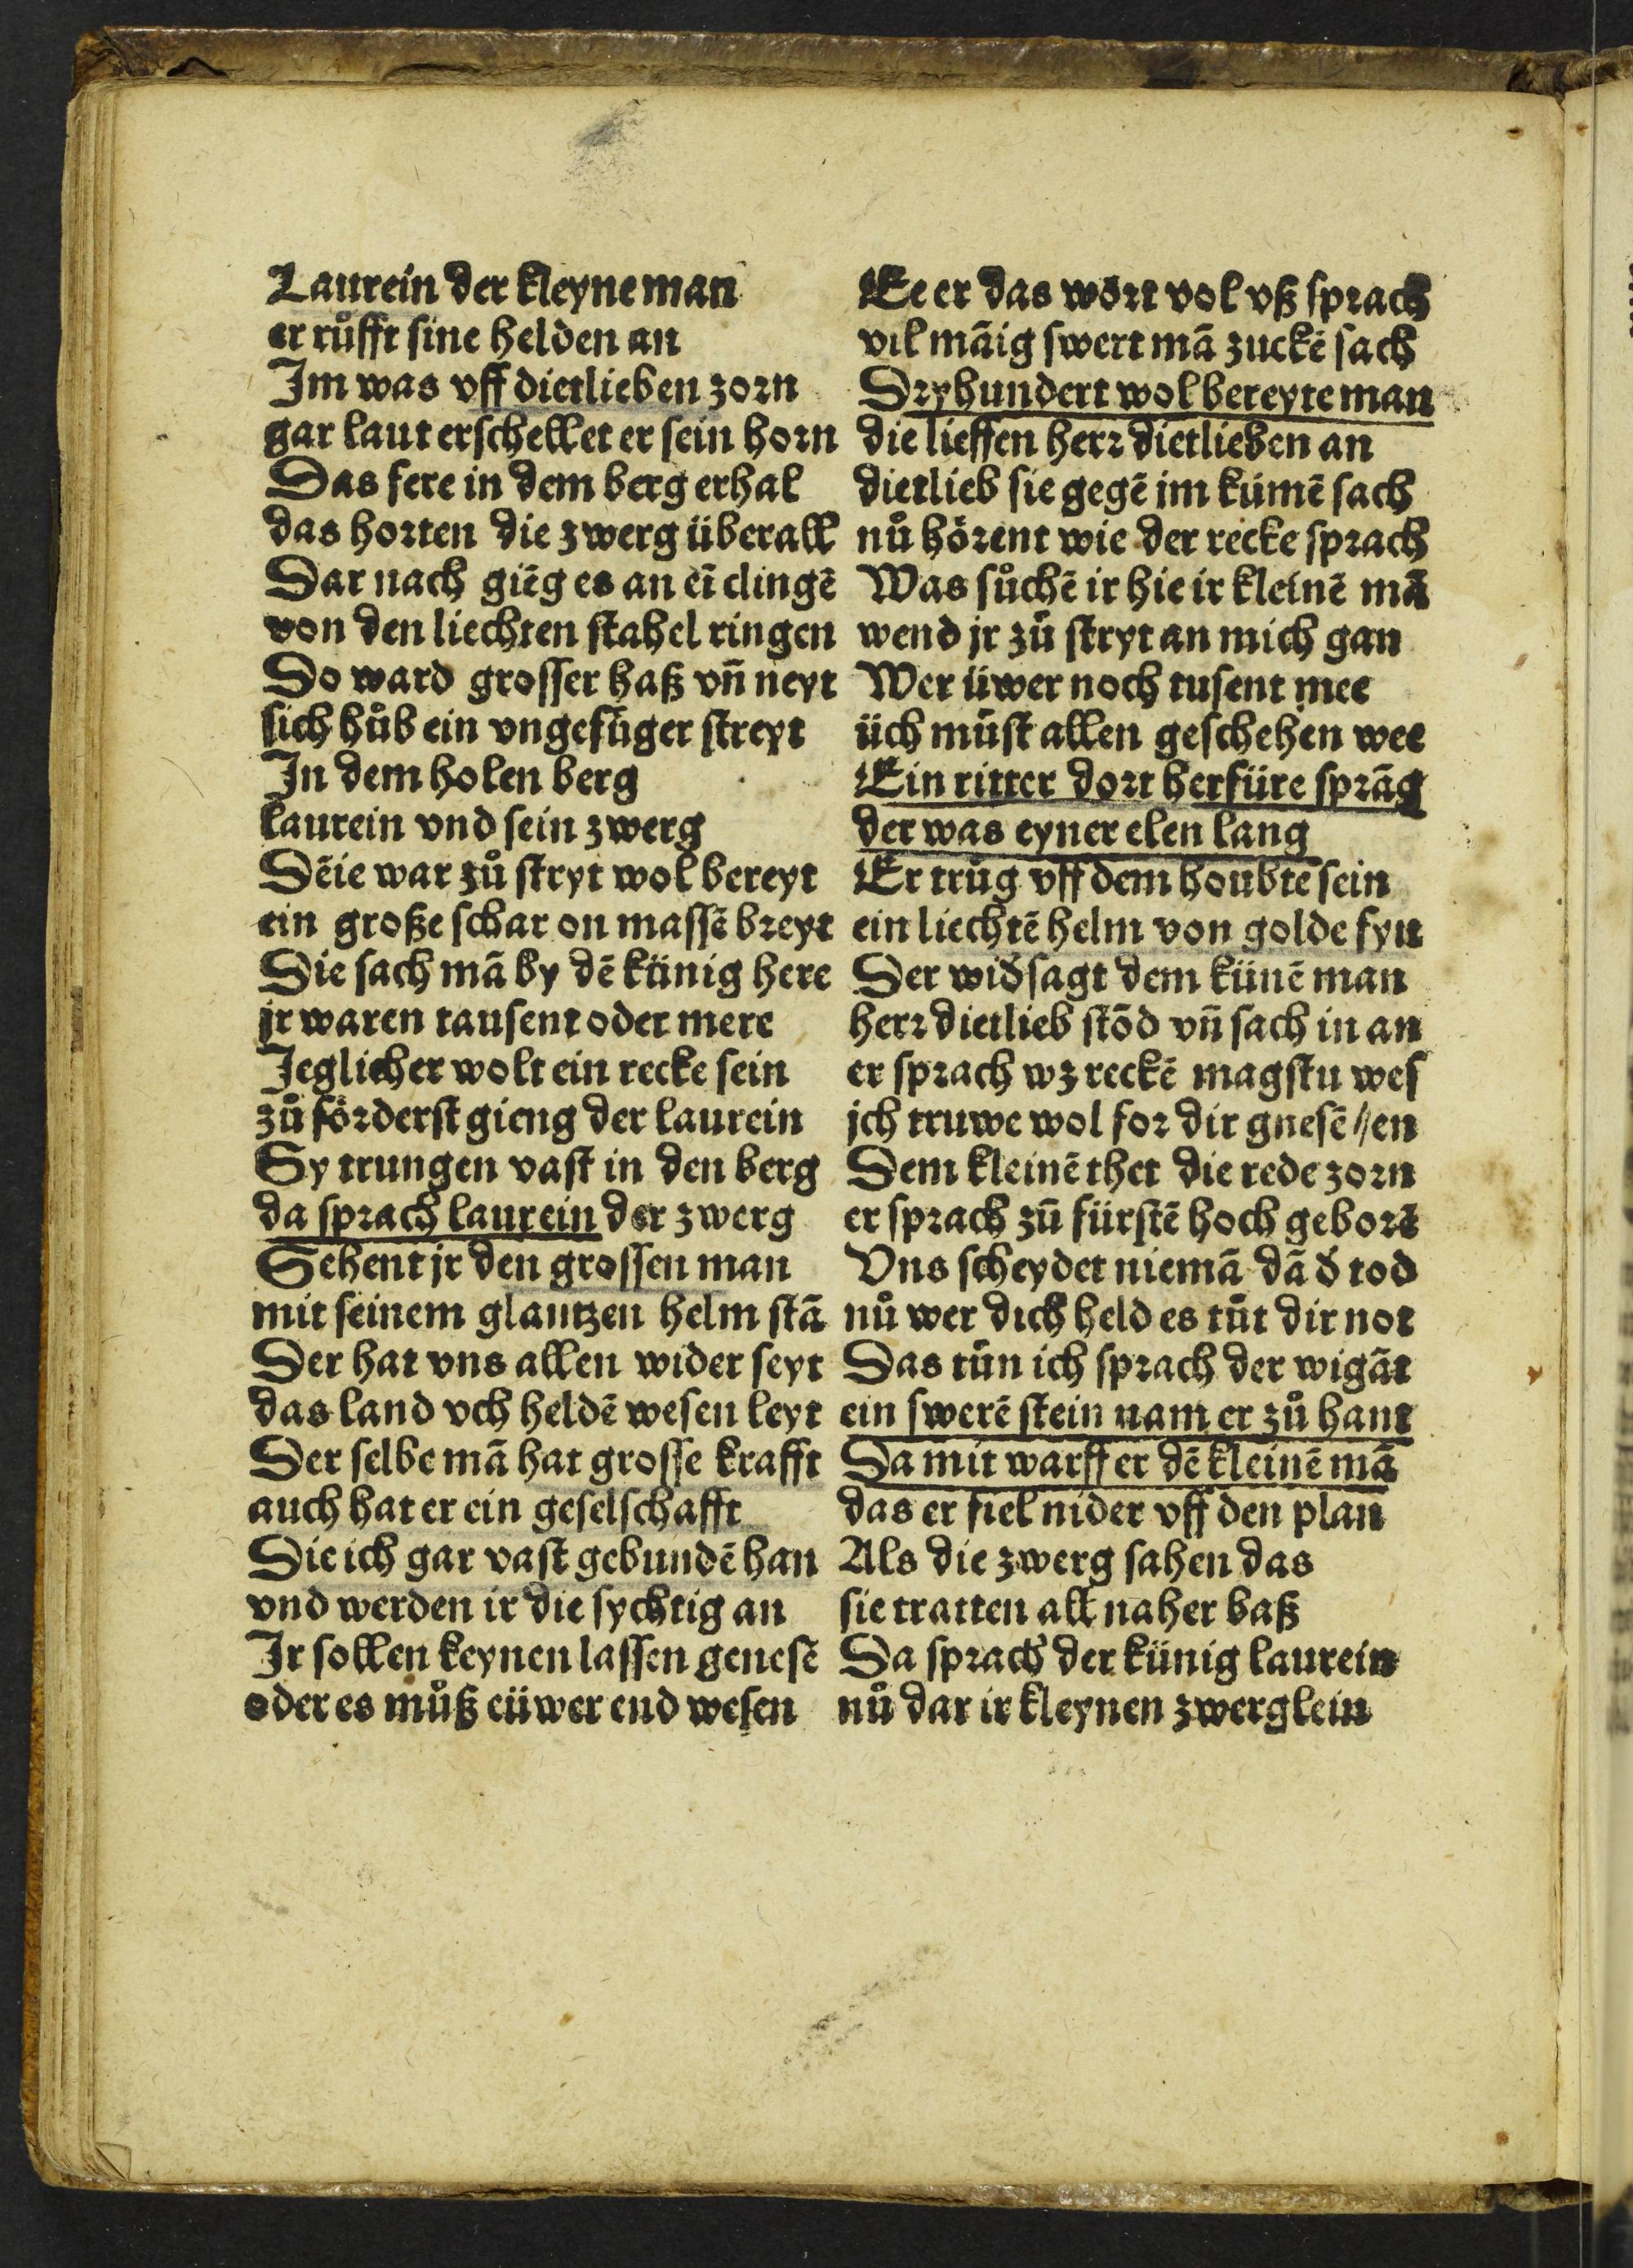 Laurein der kleyne man
er růfft sine helden an
Im was vff dietlieben zorn
gar laut erschellet er sein horn
Das fere in dem berg erhal
das horten die zwerg überall
Dar nach giēg es an eī clingē
von den liechten stahel ringen
Do ward grosser haß vn̄ neyt
sich hůb ein vngefüger streyt
In dem holen berg
laurein vnd sein zwerg
Dēie war zů stryt wol bereyt
ein große schar on massē breyt
Die sach mā by dē künig here
jr waren tausent oder mere
Jeglicher wolt ein recke sein
zů förderst gieng der laurein
Sy trungen vast in den berg
da sprach laurein der zwerg
Sehent jr den grossen man
mit seinem glantzen helm stā
Der hat vns allen wider seyt
das land vch heldē wesen leyt
Der selbe mā hat grosse krafft
auch hat er ein geselschafft
Die ich gar vast gebundē han
vnd werden ir die sychtig an
Ir sollen keynen lassen genesē
oder es můß eüwer end wesen
Ee er das wort vol vß sprach
vil māig swert mā zuckē sach
Dryhundert wol bereyte man
die lieffen herr dietlieben an
dietlieb sie gegē im kümē sach
nů hörent wie der recke sprach
Was sůchē ir hie ir kleinē mā
wend jr zů stryt an mich gan
Wer üwer noch tusent mee
üch müst allen geschehen wee
Ein ritter dort herfüre sprāg
der was eyner elen lang
Er trůg vff dem houbte sein
ein liechtē helm von golde fyn
Der wid̄sagt dem künē man
herr dietlieb stōd vn̄ sach in an
er sprach wz reckē magstu wes
jch truwe wol for dir gnesē //en
Dem kleinē thet die rede zorn
er sprach zū fürstē hoch geborē
Vns scheydet niemā dā d̄ tod
nů wer dich held es tůt dir not
Das tůn ich sprach der wigāt
ein swerē stein nam er zů hant
Da mit warff er dē kleinē mā
das er fiel nider vff den plan
Als die zwerg sahen das
sie tratten all naher baß
Da sprach der künig laurein
nů dar ir kleynen zwerglein